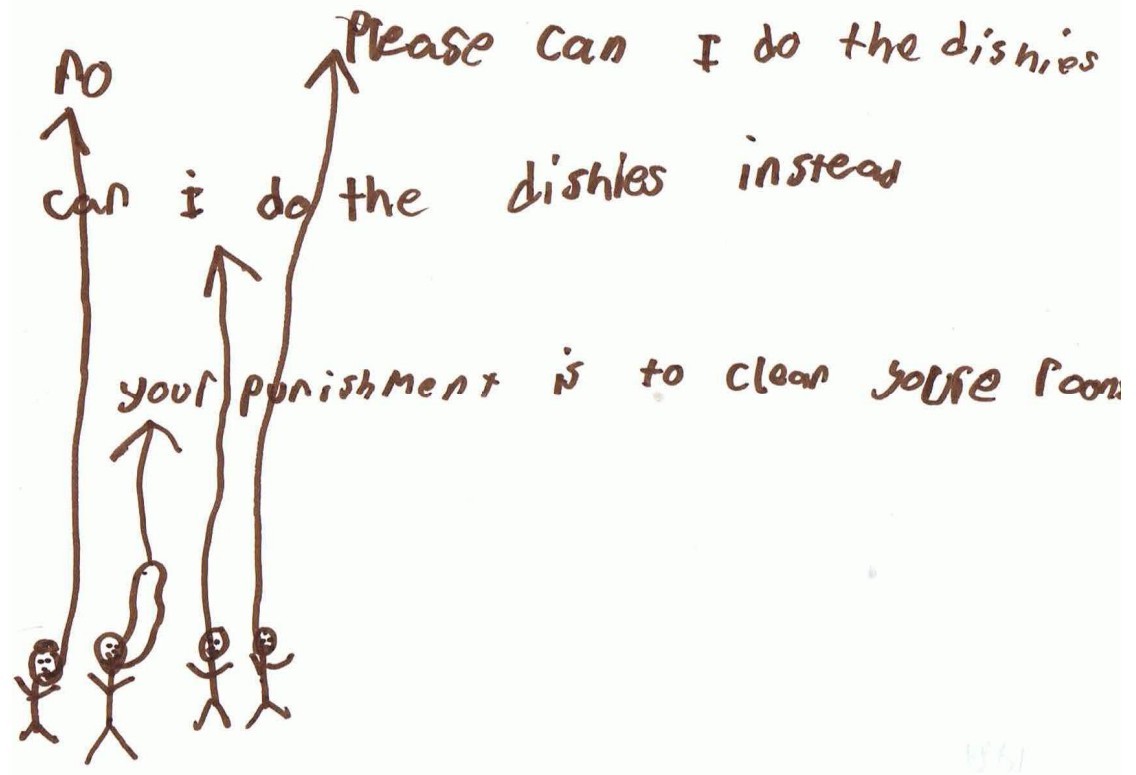 Please can I do the disnies
no
can i do the dishies instead
your punishment is to clean youre room